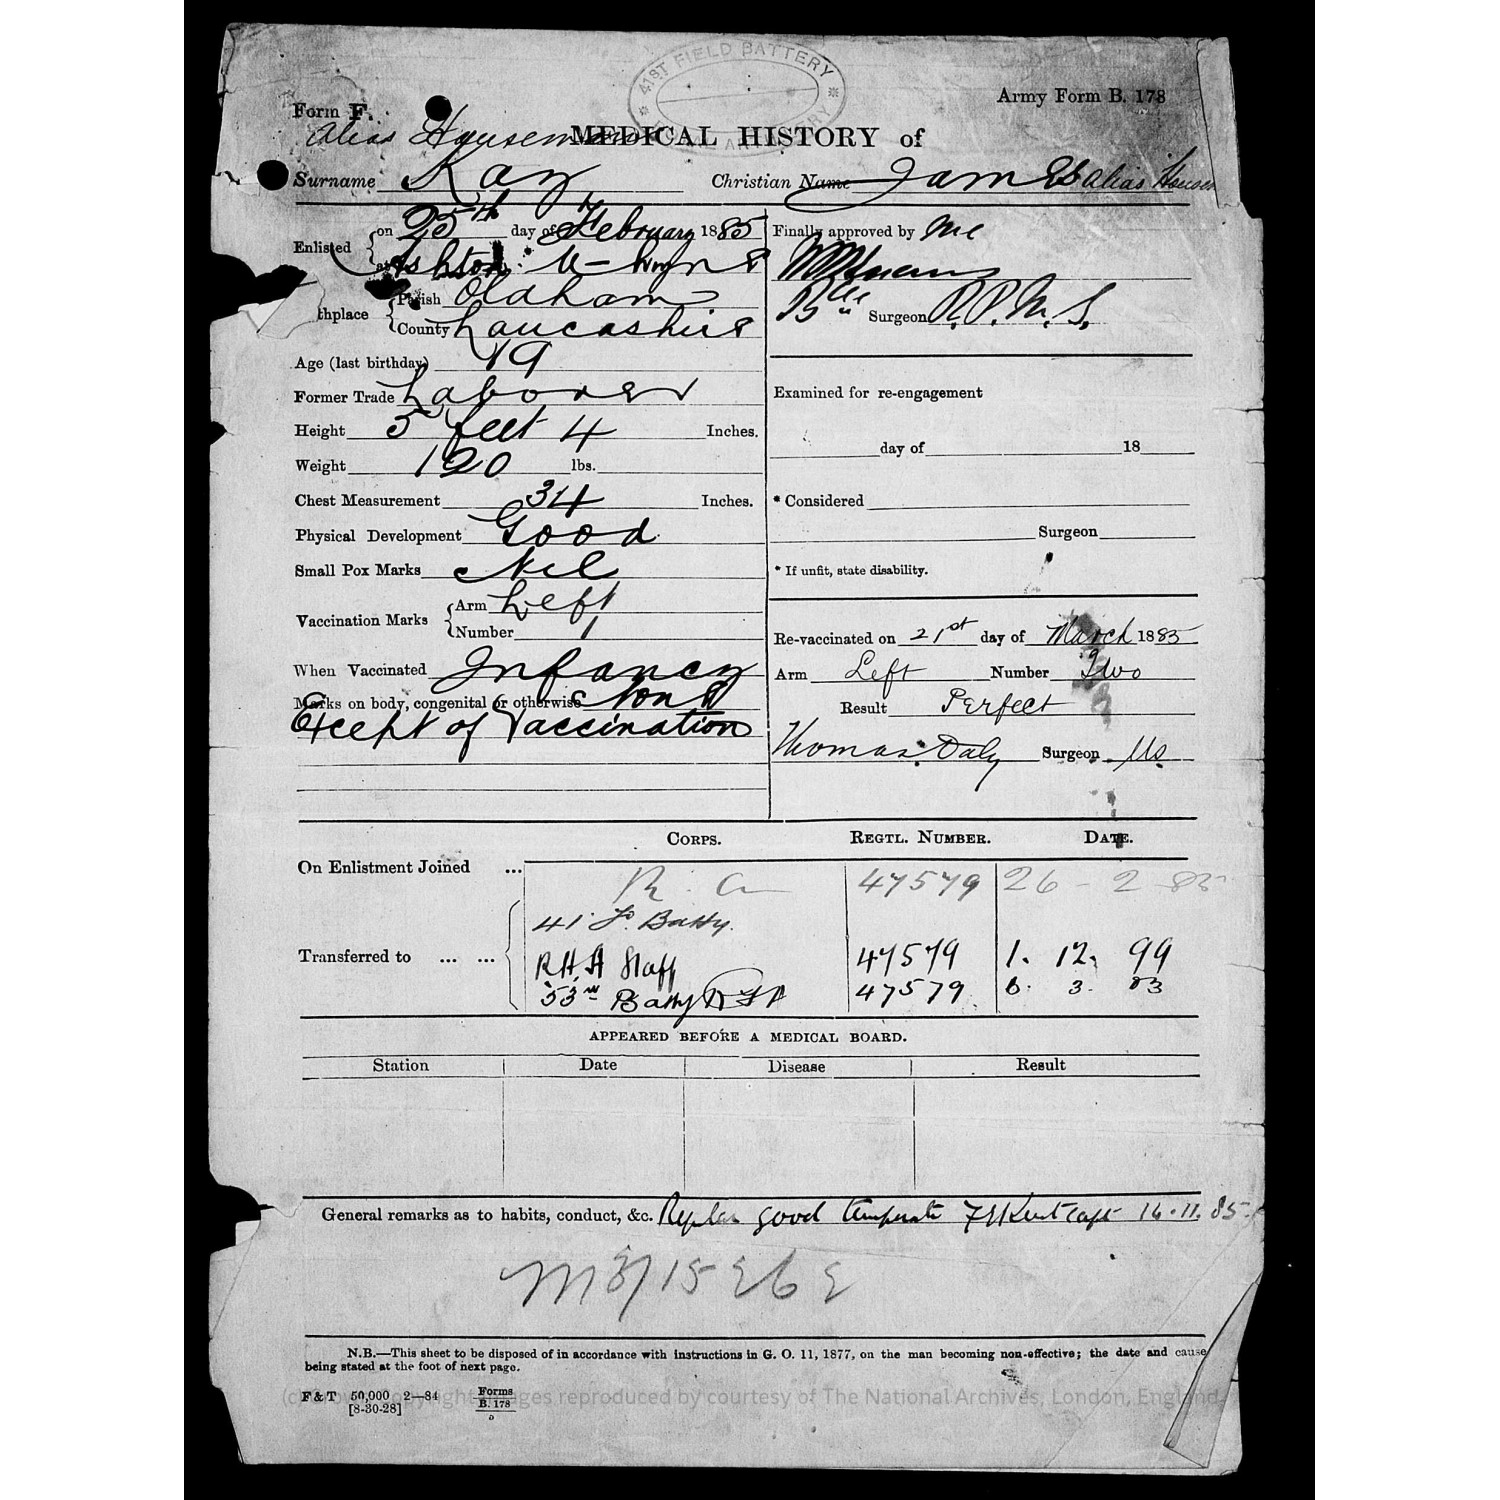 41ST FIELD BATTERY
Army Form B. 178
Form F.
alias Houseman
MEDICAL HISTORY of
Surname Kay Christian Name James alias
Enlisted on 25th day of February 1885
at Ashton U-Lyne
Birthplace Parish Oldham
County Lancashire
Age (last birthday) 19
Former Trade Laborer
Height 5 feet 4 Inches.
Weight 120 lbs.
Chest Measurement 34 Inches.
Physical Development Good
Small Pox Marks Nil
Vaccination Marks Arm Left
Number 1
When Vaccinated Infancy
Marks on body, congenital or otherwise None
Except of Vaccination
Finally approved by me
Surgeon
Examined for re-engagement
day of 18
* Considered
Surgeon
* If unfit, state disability.
Re-vaccinated on 21st day of March 1885
Arm Left Number Two
Result Perfect
Thomas Daly Surgeon Ms.
CORPS. REGTL. NUMBER. DATE.
On Enlistment Joined ... R. A 47579 26-2-85
41 F. Batty.
Transferred to ... ... R.H.A Staff 47579 1. 12. 99
53rd Batty RFA 47579 6. 3. 03
APPEARED BEFORE A MEDICAL BOARD.
Station Date Disease Result
General remarks as to habits, conduct, &c. Regular good temperate Capt 16.11.85
N.B.—This sheet to be disposed of in accordance with instructions in G. O. 11, 1877, on the man becoming non-effective; the date and cause
being stated at the foot of next page.
F & T 50,000 2—84 Forms
[8-30-28] B. 178
images reproduced by courtesy of The National Archives, London, England.